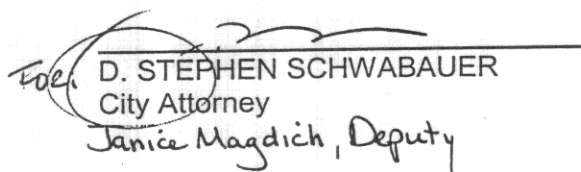 For: D. STEPHEN SCHWABAUER
City Attorney
Janice Magdich, Deputy